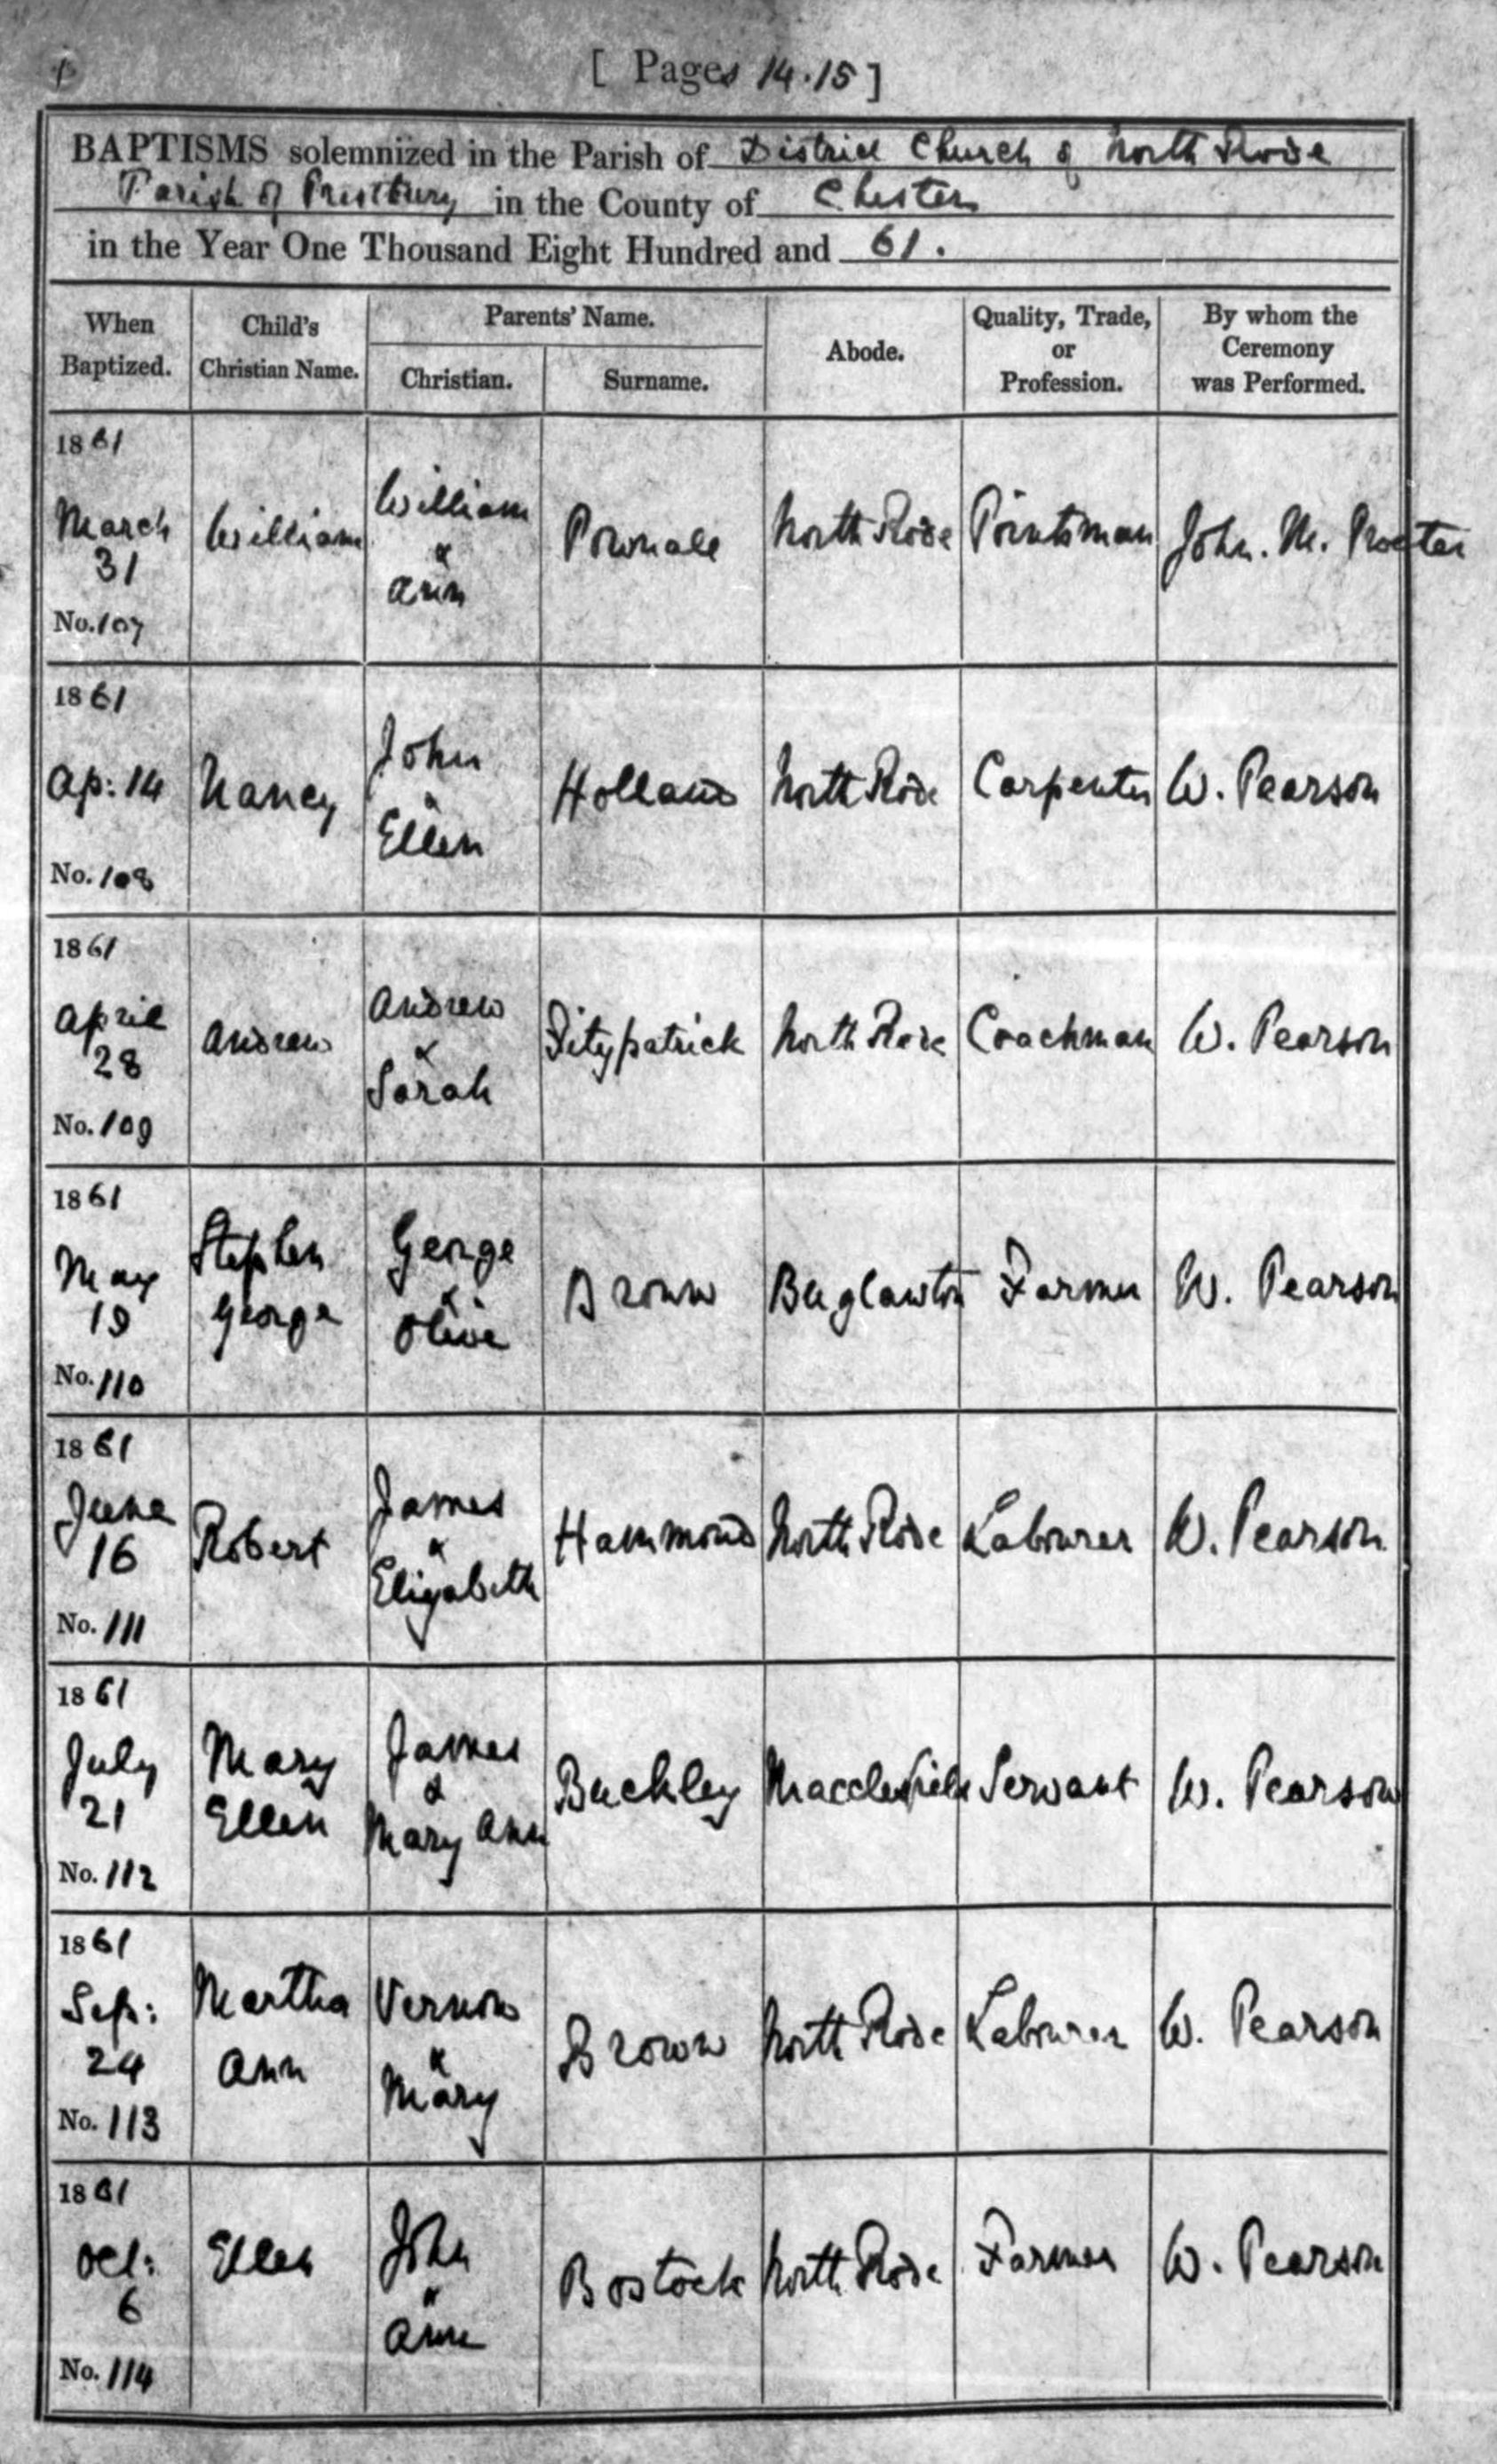 [ Pages 14.15 ]
BAPTISMS solemnized in the Parish of District Church of North Rode
Parish of Prestbury in the County of Chester
in the Year One Thousand Eight Hundred and 61.
When Baptized.
Child's Christian Name.
Parents' Name.
Christian.
Surname.
Abode.
Quality, Trade, or Profession.
By whom the Ceremony was Performed.
1861
March 31
No. 107
William
William & Ann
Pownall
North Rode
Pointsman
John. M. Procter
1861
Ap: 14
No. 108
Nancy
John & Ellen
Holland
North Rode
Carpenter
W. Pearson
1861
April 28
No. 109
Andrew
Andrew & Sarah
Fitzpatrick
North Rode
Coachman
W. Pearson
1861
May 19
No. 110
Stephen George
George & Olive
Brown
Buglawton
Farmer
W. Pearson
1861
June 16
No. 111
Robert
James & Elizabeth
Hammond
North Rode
Labourer
W. Pearson
1861
July 21
No. 112
Mary Ellen
James & Mary Ann
Buckley
Macclesfield
Servant
W. Pearson
1861
Sep: 24
No. 113
Martha Ann
Vernon & Mary
Brown
North Rode
Labourer
W. Pearson
1861
Oct: 6
No. 114
Ellen
John & Ann
Bostock
North Rode
Farmer
W. Pearson